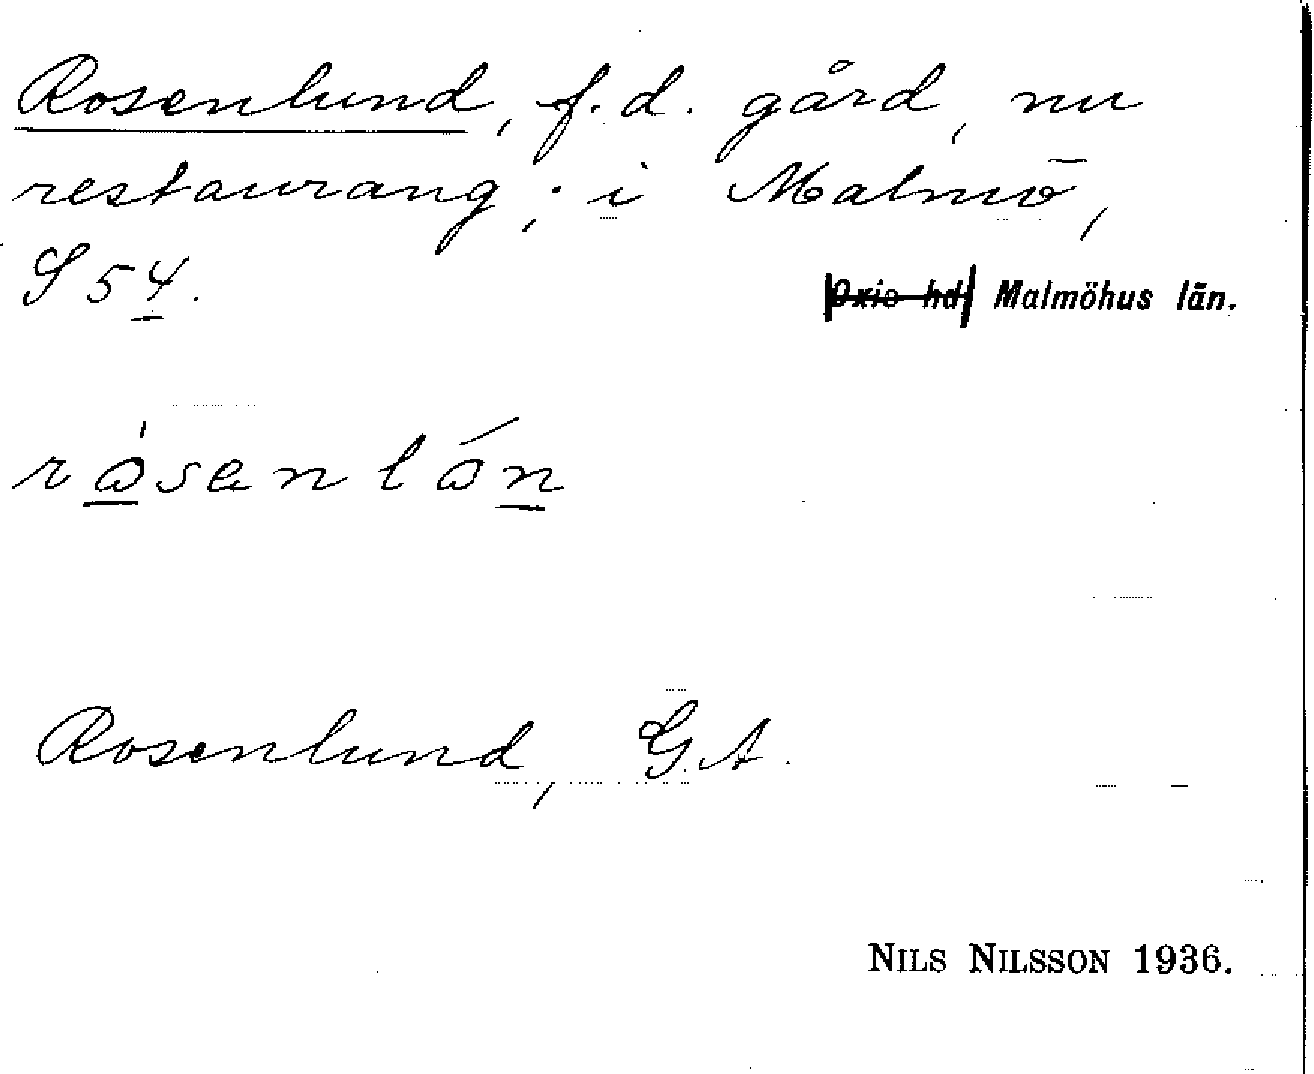 Rosenlund, f. d. gård, nu
restaurang, i Malmö,
S 54.
Oxie hd Malmöhus län.
Rosenlund, G. A.
NILS NILSSON 1936.